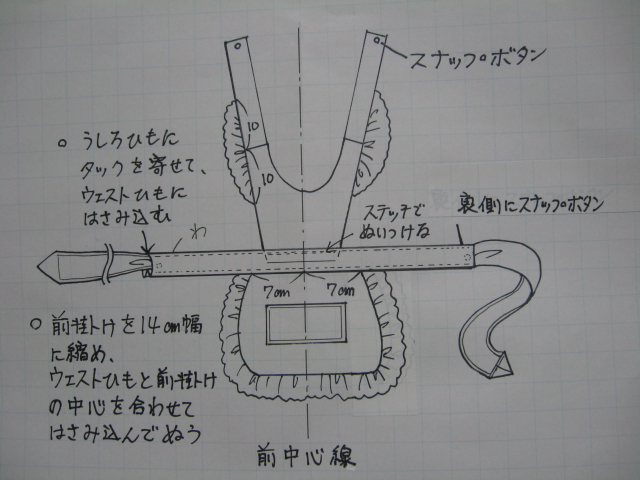 スナップボタン
10
10
○ うしろひもに
タックを寄せて、
ウェストひもに
はさみ込む
わ
ステッチで
ぬいつける
裏側にスナップボタン
7cm
7cm
○ 前掛けを14cm幅
に縮め、
ウェストひもと前掛け
の中心を合わせて
はさみ込んでぬう
前中心線